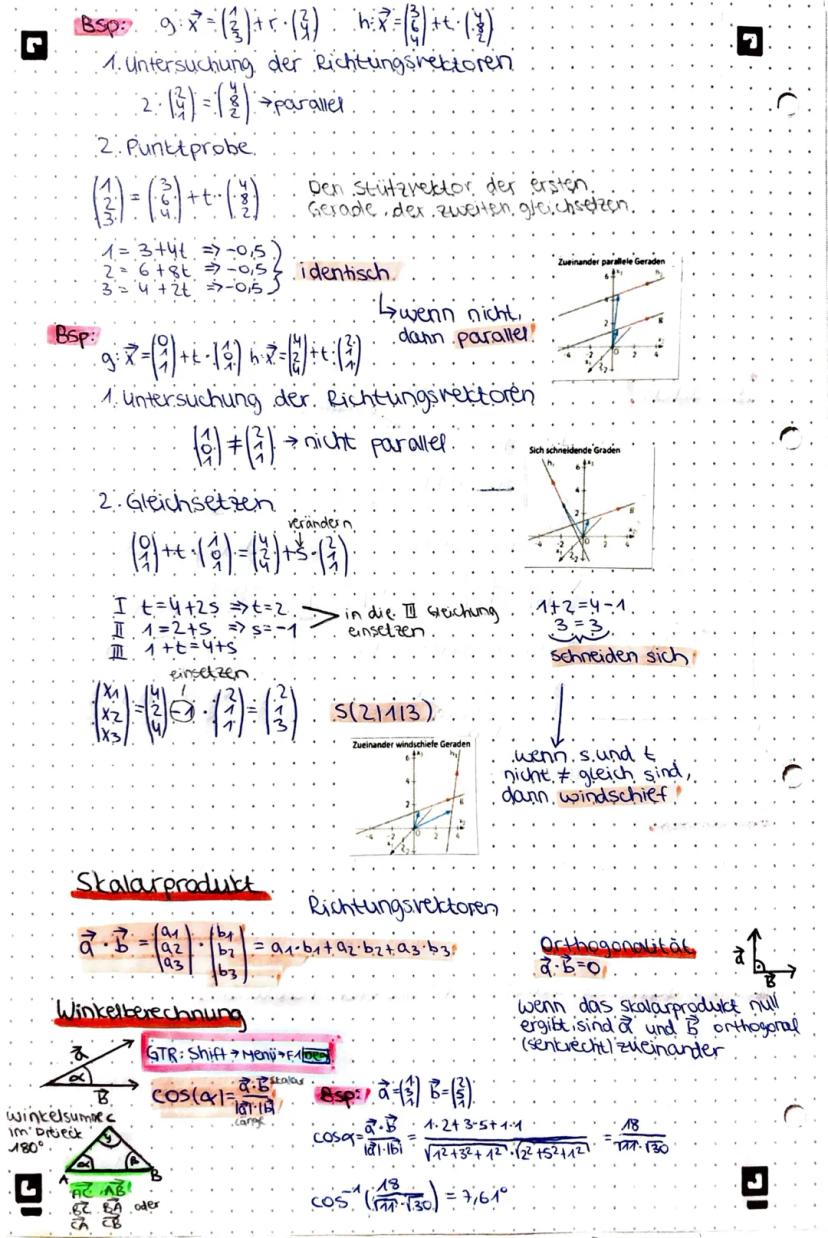 Bsp: g: x⃗ = (1 2 3) + r · (2 4 1) h: x⃗ = (3 6 4) + t · (4 8 2)
1. Untersuchung der Richtungsvektoren
2 · (2 4 1) = (4 8 2) → parallel
2. Punktprobe
(1 2 3) = (3 6 4) + t · (4 8 2)
Den Stützvektor der ersten
Gerade der zweiten gleichsetzen.
1 = 3 + 4t => -0,5
2 = 6 + 8t => -0,5
3 = 4 + 2t => -0,5
identisch
↳ wenn nicht,
dann parallel!
Zueinander parallele Geraden
Bsp:
g: x⃗ = (0 1 1) + t · (1 0 1) h: x⃗ = (4 2 4) + t · (2 1 1)
1. Untersuchung der Richtungsvektoren
(1 0 1) ≠ (2 1 1) → nicht parallel
Sich schneidende Graden
2. Gleichsetzen
verändern
(0 1 1) + t · (1 0 1) = (4 2 4) + s · (2 1 1)
I t = 4 + 2s => t = 2
II 1 = 2 + s => s = -1
III 1 + t = 4 + s
in die III Gleichung
einsetzen
1 + 2 = 4 - 1
3 = 3
schneiden sich
einsetzen
(x1 x2 x3) = (4 2 4) -1 · (2 1 1) = (2 1 3)
S(2|1|3)
wenn s und t
nicht ≠ gleich sind,
dann windschief!
Zueinander windschiefe Geraden
Skalarprodukt
Richtungsvektoren
a⃗ · b⃗ = (a1 a2 a3) · (b1 b2 b3) = a1·b1 + a2·b2 + a3·b3
Orthogonalität
a⃗ · b⃗ = 0
a⃗
b⃗
wenn das Skalarprodukt null
ergibt, sind a⃗ und b⃗ orthogonal
(senkrecht) zueinander
Winkelberechnung
a⃗
α
b⃗
GTR: Shift → Menü → F1 DEG
cos(α) = a⃗·b⃗ / |a⃗|·|b⃗|
Skalar
Länge
Bsp: a⃗ = (1 3 1) b⃗ = (2 5 1)
cosα = a⃗·b⃗ / |a⃗|·|b⃗| = 1·2+3·5+1·1 / √(1²+3²+1²)·√(2²+5²+1²) = 18 / √11·√30
cos⁻¹(18 / √11·√30) = 7,61°
Winkelsumme
im Dreieck
180°
C
γ
α
β
A
B
AC⃗ AB⃗
BC⃗ BA⃗ oder
CA⃗ CB⃗